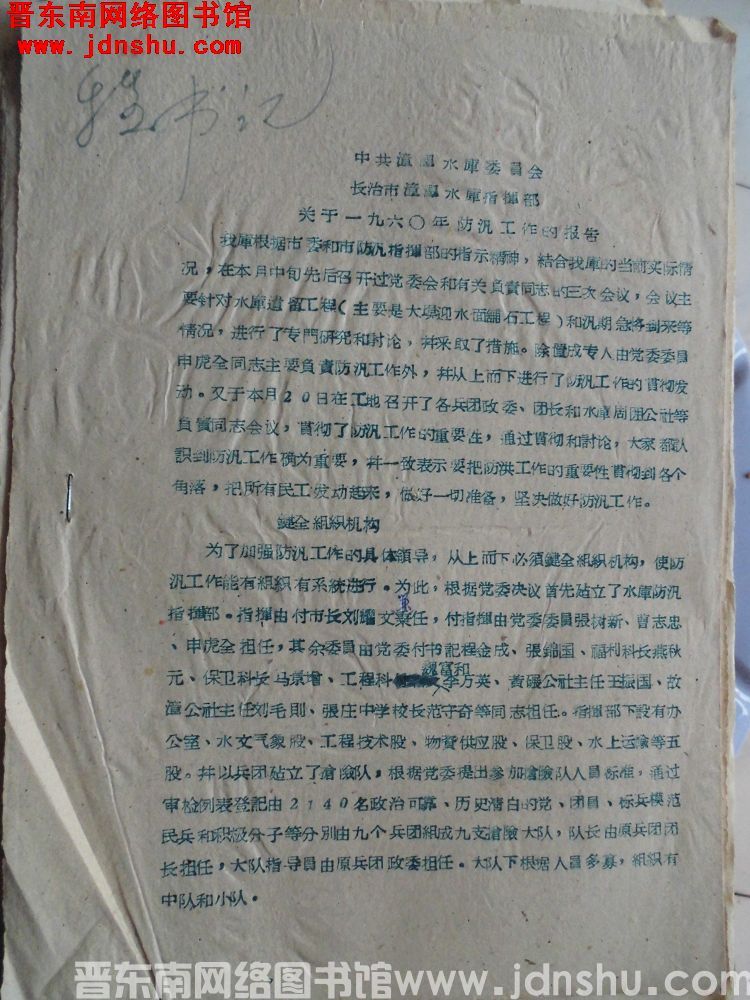 晋东南网络图书馆
www.jdnshu.com
书记
中共漳泽水库委员会
长治市漳泽水库指挥部
关于一九六〇年防汎工作的报告
我库根据市委和市防汎指揮部的指示精神，結合我库的当前实际情
况，在本月中旬先后召开过党委会和有关負責同志的三次会议，会议主
要針对水庫遺留工程（主要是大壩迎水面鋪石工程）和汎期急将到来等
情况，进行了专門研究和討论，并采取了措施。除責成专人由党委委員
申虎全同志主要負責防汎工作外，并从上而下进行了防汎工作的貫彻发
动。又于本月20日在工地召开了各兵团政委、团长和水庫周囲公社等
負責同志会议，貫彻了防汎工作的重要性，通过貫彻和討论，大家都认
識到防汎工作确为重要，并一致表示要把防洪工作的重要性貫彻到各个
角落，把所有民工发动起来，做好一切准备，坚决做好防汎工作。
鍵全組織机构
为了加強防汎工作的具体領导，从上而下必須鍵全組織机构，使防
汎工作能有組織有系統进行。为此，根据党委决议首先建立了水庫防汎
指揮部。指揮由付市长刘耀文兼任，付指揮由党委委員張树新、曹志忠
、申虎全担任，其余委員由党委付书記程金成、張錦国、福利科长燕秋
元、保卫科长马景增、工程科魏富和李万英、黄碾公社主任王振国、故
漳公社主任刘毛則、張庄中学校长范守奇等同志担任。指揮部下設有办
公室、水文气象股、工程技术股、物資供应股、保卫股、水上运输等五
股。并以兵团建立了搶險队，根据党委提出参加搶險队人員标准，通过
审检例表登記由2140名政治可靠、历史清白的党、团員、标兵模范
民兵和积极分子等分别由九个兵团組成九支搶險大队，队长由原兵团团
长担任，大队指导員由原兵团政委担任。大队下根据人員多寡，組織有
中队和小队。
晋东南网络图书馆www.jdnshu.com